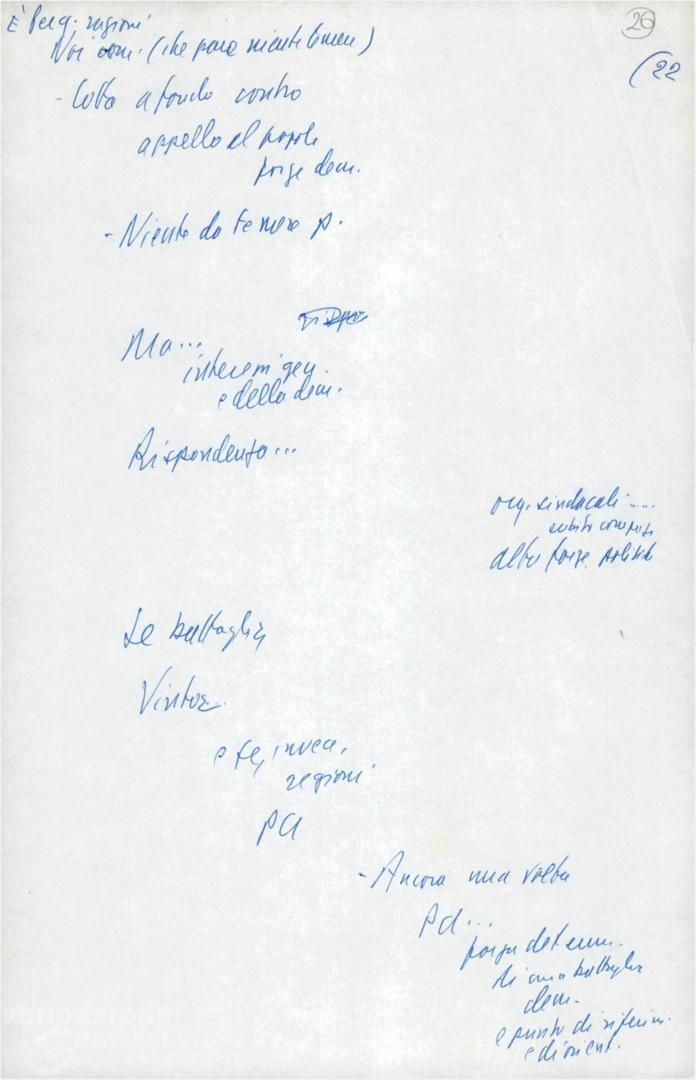 26
(22
È Per q. ragioni
Noi com. (che pure niente temere)
- Lotta a fondo contro
appello al popolo
forze dem.
- Niente da temere p.
Ma...
interessi gen.
e della dem.
Rispondenza...
org. sindacali ....
subito
altre forze polit
Se battaglia
Vinta
e se, invece,
regioni
PCI
- Ancora una volta
PCI...
forza determ.
di una battaglia
dem.
e punto di riferim.
e di orient.